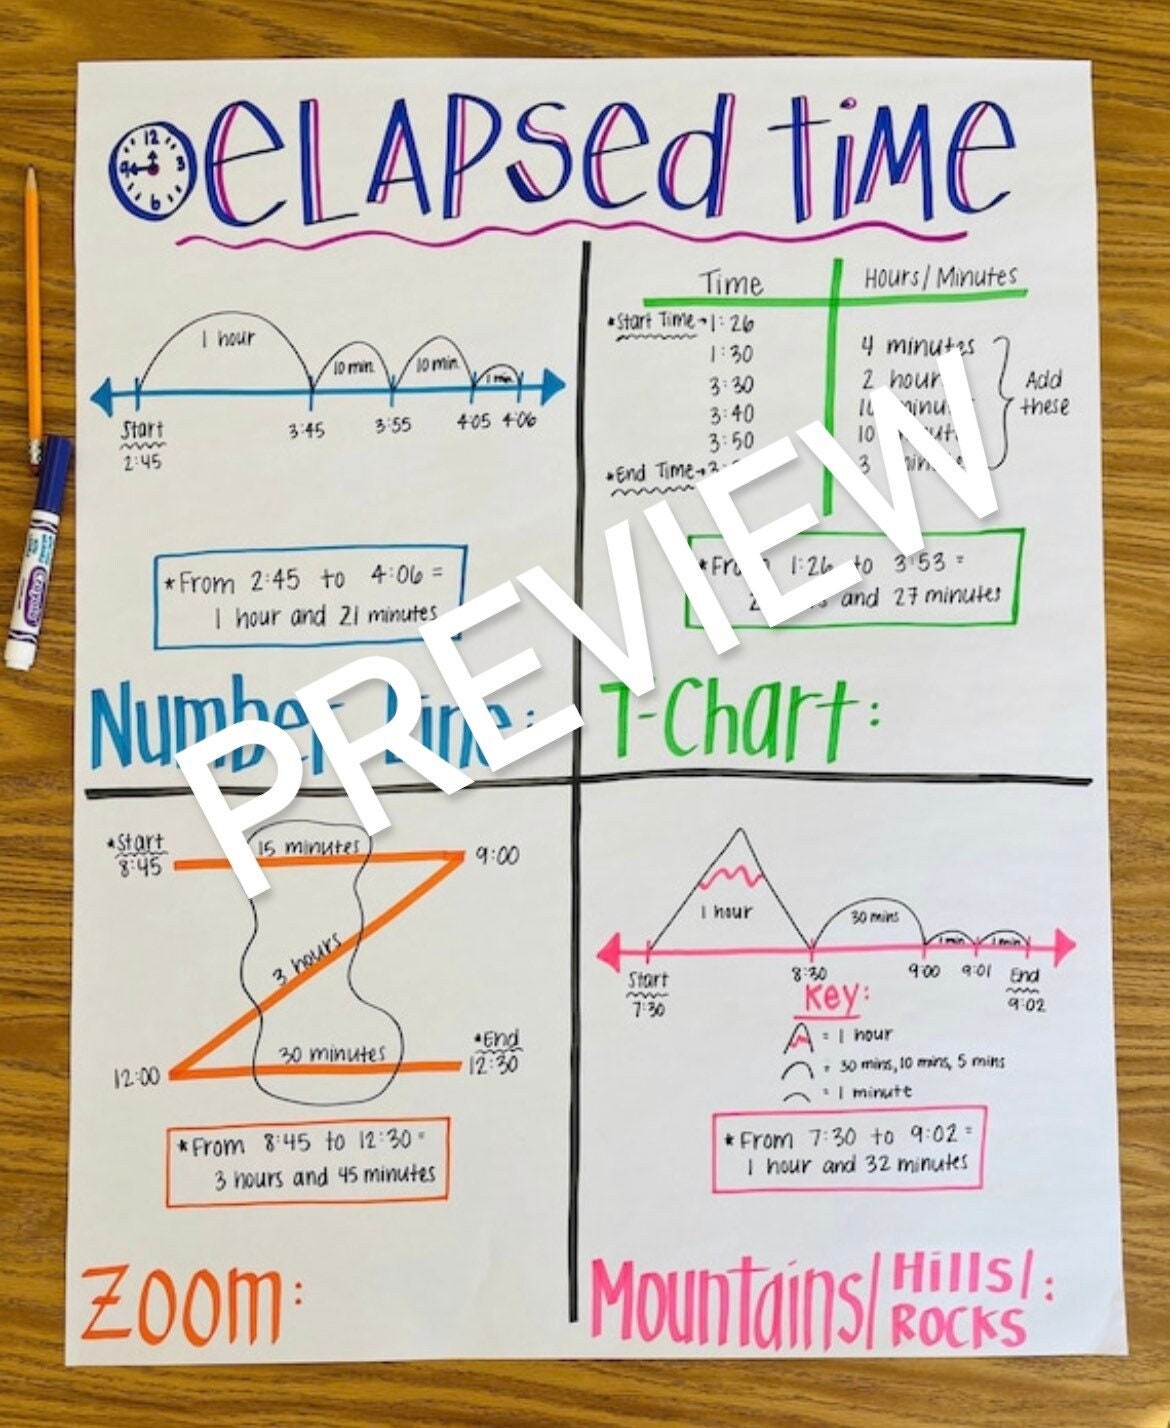 12
9 3
6
ELAPSED TIME
1 hour
10 min.
10 min
1 min.
Start
2:45
3:45
3:55
4:05
4:06
*From 2:45 to 4:06 =
1 hour and 21 minutes
Number Line:
Time
Hours/Minutes
*Start Time → 1:26
1:30
3:30
3:40
3:50
*End Time →
4 minutes
2
10
10
3
Add
these
1:26 to 3:53 =
and 27 minutes
T-Chart:
PREVIEW
*Start
8:45
15 minutes
9:00
3 hours
12:00
30 minutes
*End
12:30
*From 8:45 to 12:30 =
3 hours and 45 minutes
Zoom:
1 hour
30 mins
1 min
1 min
Start
7:30
8:30
9:00
9:01
End
9:02
Key:
= 1 hour
= 30 mins, 10 mins, 5 mins
= 1 minute
*From 7:30 to 9:02 =
1 hour and 32 minutes
Mountains/Hills/:
ROCKS
Crayola